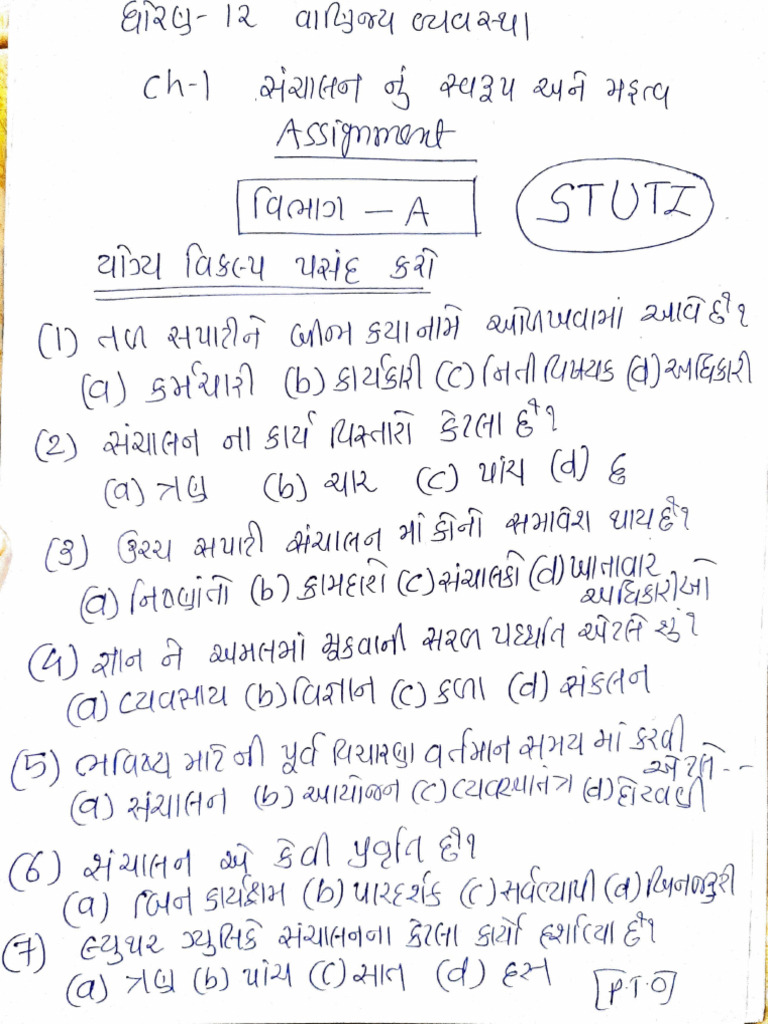 ધોરણ - 12 વાણિજ્ય વ્યવસ્થા
Ch-1 સંચાલન નું સ્વરૂપ અને મહત્વ
Assignment
વિભાગ - A
STUTI
યોગ્ય વિકલ્પ પસંદ કરો
(1) તળ સપાટીને બીજા કયા નામે ઓળખવામાં આવે છે?
(a) કર્મચારી (b) કાર્યકારી (c) નિતી વિષયક (d) અધિકારી
(2) સંચાલન ના કાર્ય વિસ્તારો કેટલા છે?
(a) ત્રણ (b) ચાર (c) પાંચ (d) છ
(3) ઉચ્ચ સપાટી સંચાલન માં કોનો સમાવેશ થાય છે?
(a) નિષ્ણાંતો (b) કામદારો (c) સંચાલકો (d) ખાતાવાર
અધિકારીઓ
(4) જ્ઞાન ને અમલમાં મૂકવાની સરળ પદ્ધતિ એટલે શું?
(a) વ્યવસાય (b) વિજ્ઞાન (c) કળા (d) સંકલન
(5) ભવિષ્ય માટે ની પૂર્વ વિચારણા વર્તમાન સમય માં કરવી
એટલે --
(a) સંચાલન (b) આયોજન (c) વ્યવસ્થાતંત્ર (d) દોરવણી
(6) સંચાલન એ કેવી પ્રવૃતિ છે?
(a) બિન કાર્યક્ષમ (b) પારદર્શક (c) સર્વવ્યાપી (d) બિનજરૂરી
(7) લ્યુથર ગ્યુલિકે સંચાલનના કેટલા કાર્યો દર્શાવ્યા છે?
(a) ત્રણ (b) પાંચ (c) સાત (d) દસ
[P.T.O]